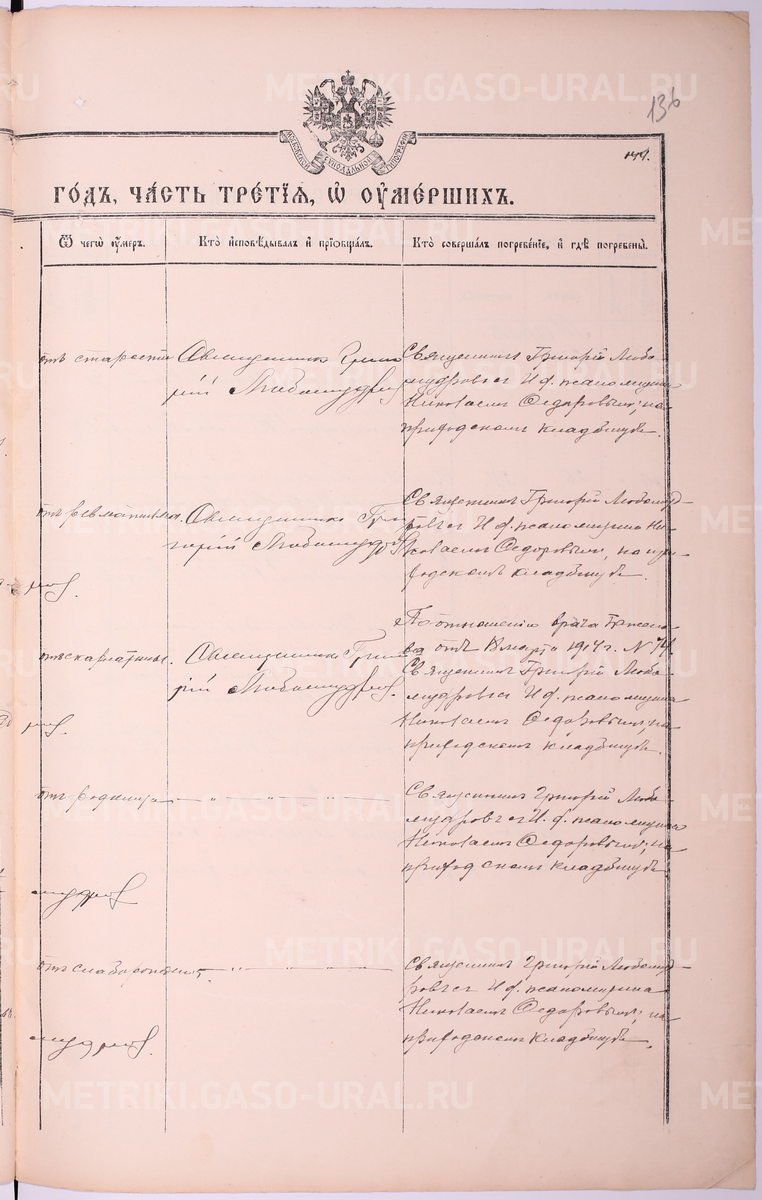 136
МОСКОВСКОЙ СѴНОДАЛЬНОЙ ТИПОГРАФІИ
го́дъ, ча́сть тре́тїѧ, ѡ҆ ᲂу҆ме́ршихъ.
Ѿ чегѡ̀ ᲂу҆́меръ.
Кто̀ и҆сповѣ́дывалъ и҆ прїѡбща́лъ.
Кто̀ соверша́лъ погребе́нїе, и҆ гдѣ̀ погребены̀.
отъ старости
Священникъ Григо
рій Любомудровъ
Священникъ Григорій Любо
мудровъ съ И. ф. псаломщика
Николаемъ Федоровымъ, на
приходскомъ кладбищѣ.
отъ ревматизма.
Священникъ Гри
горій Любомудровъ
Священникъ Григорій Любомуд
ровъ съ И. ф. псаломщика Ни
колаемъ Федоровымъ, на при
ходскомъ кладбищѣ.
отъ скарлатины.
Священникъ Григо
рій Любомудровъ.
По отношенію врача
отъ 8 марта 1914 г. № 74.
Священникъ Григорій Любо
мудровъ съ И. ф. псаломщика
Николаемъ Федоровымъ, на
приходскомъ кладбищѣ.
отъ родимца
Священникъ Григорій Любо
мудровъ съ И. ф. псаломщика
Николаемъ Федоровымъ, на
приходскомъ кладбищѣ
мудровъ
отъ слаборожден.
Священникъ Григорій Любомуд
ровъ съ И. ф. псаломщика
Николаемъ Федоровымъ, на
приходскомъ кладбищѣ.
мудровъ.
METRIKI.GASO-URAL.RU